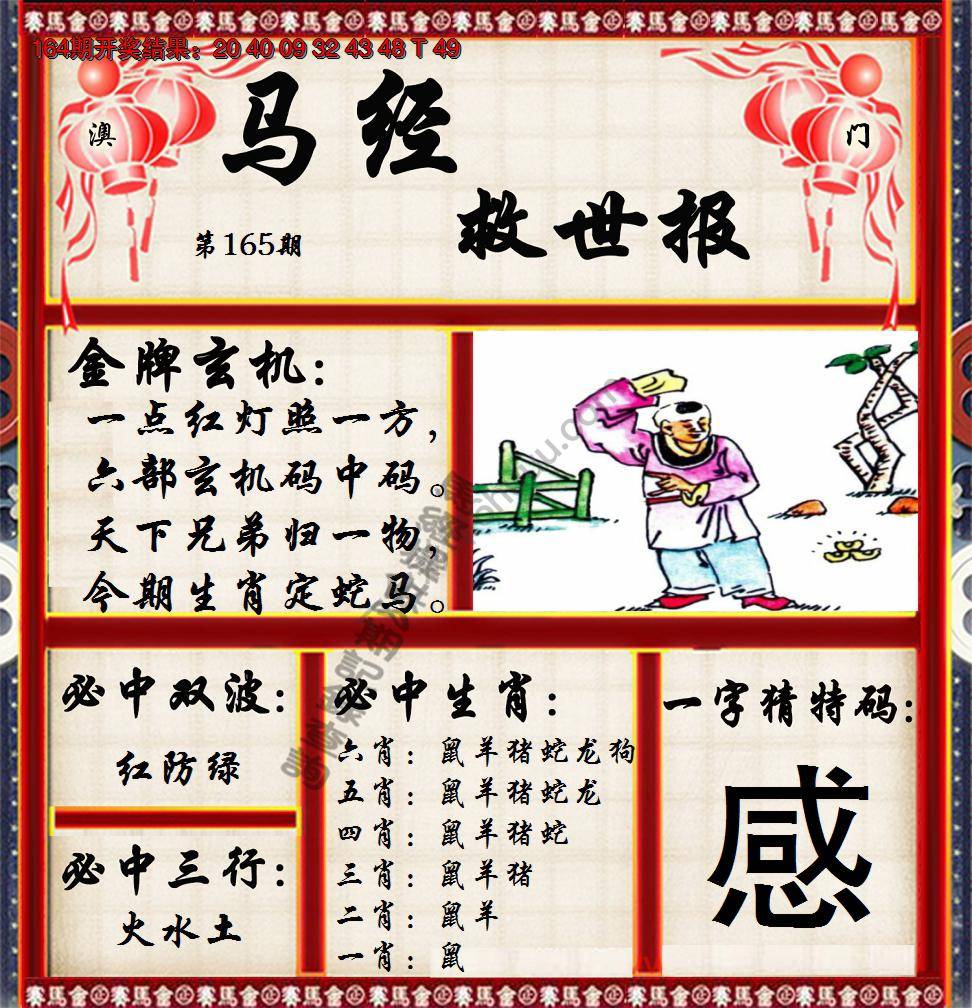 164期开奖结果：20 40 09 32 43 48 T 49
澳 门
马 经
救世报
第165期
金牌玄机：
一点红灯照一方，
六部玄机码中码。
天下兄弟归一物，
今期生肖定蛇马。
必中双波：
红防绿
必中三行：
火水土
必中生肖：
六肖：鼠羊猪蛇龙狗
五肖：鼠羊猪蛇龙
四肖：鼠羊猪蛇
三肖：鼠羊猪
二肖：鼠羊
一肖：鼠
一字猜特码：
感